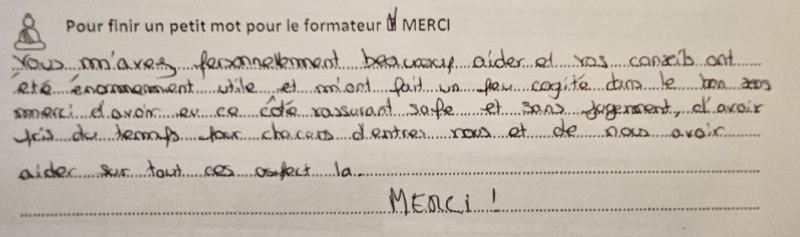 Pour finir un petit mot pour le formateur MERCI
Vous m'avez personnellement beaucoup aider et vos conseils ont
été énormenment utile et m'ont fait un peu cogité dans le bon sens
merci d'avoir eu ce côté rassurant safe et sans jugement, d'avoir
pris du temps pour chacuns d'entres nous et de nous avoir
aider sur tout ces aspect la
MERCI !